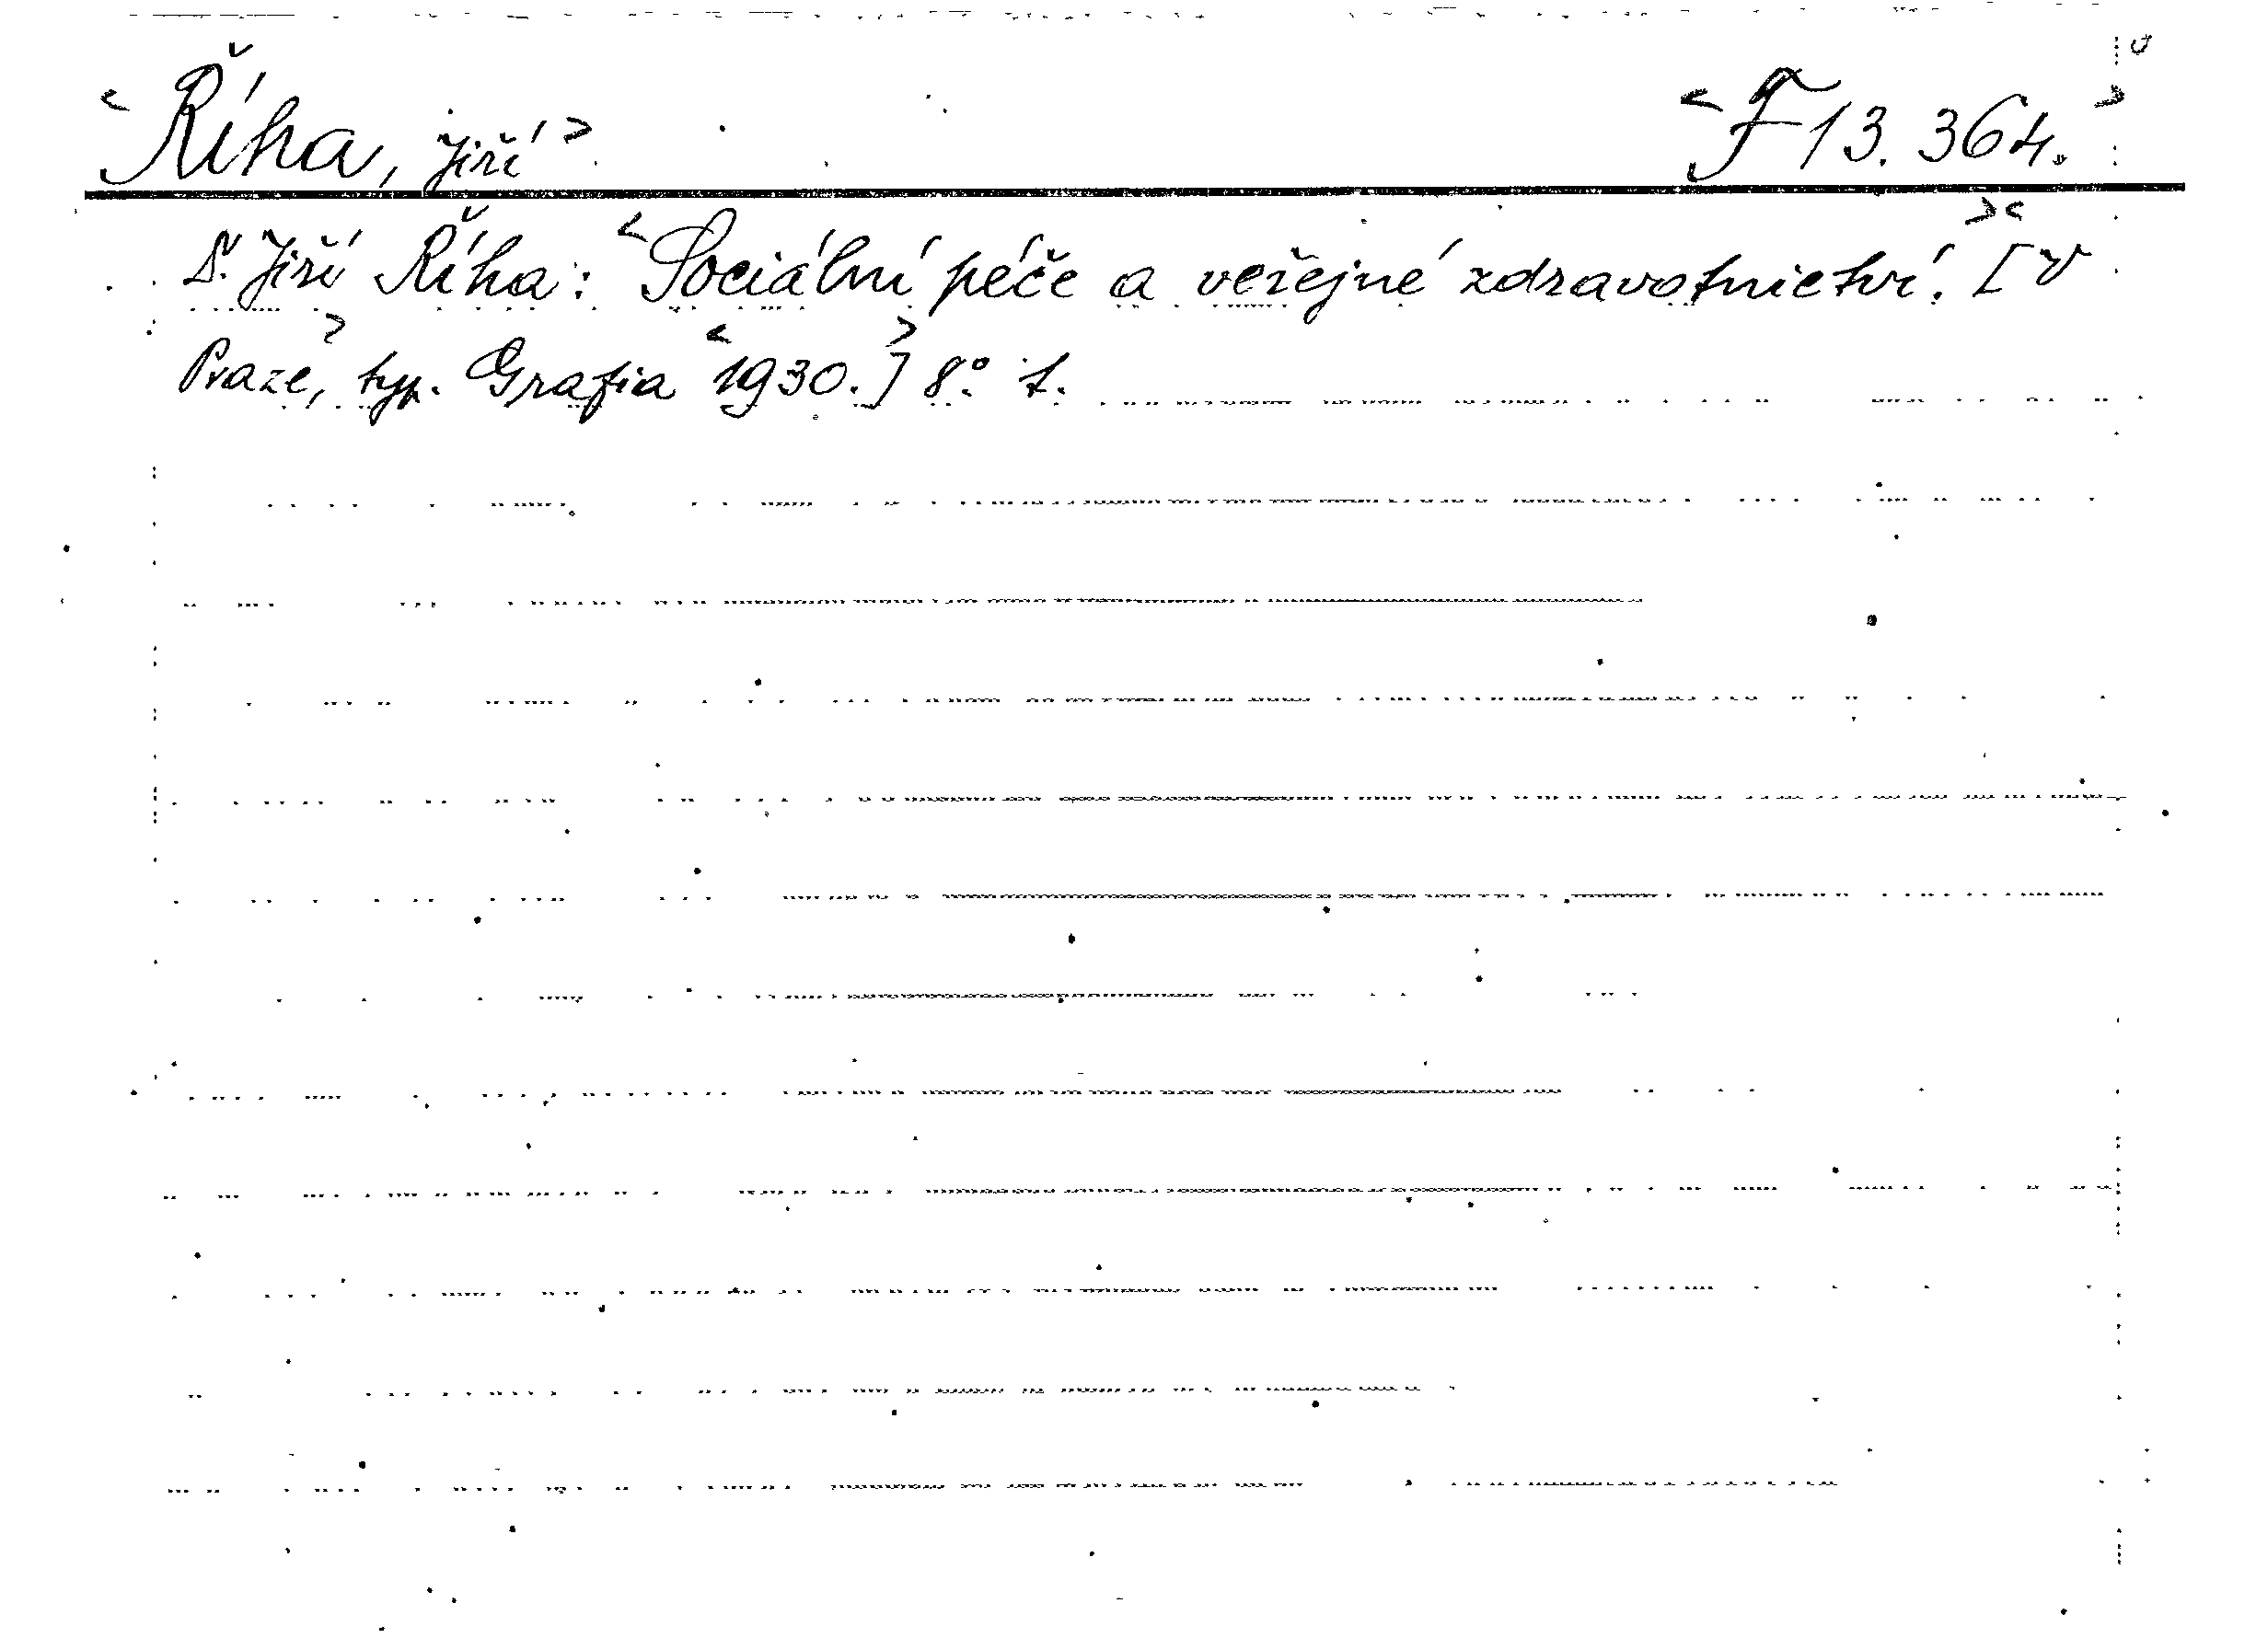 <Říha, Jiří> <F 13.364.>
D. Jiří Říha: <Sociální péče a veřejné zdravotnictví.> <[V
Praze,> typ. Grafia <1930.]> 8°. t.